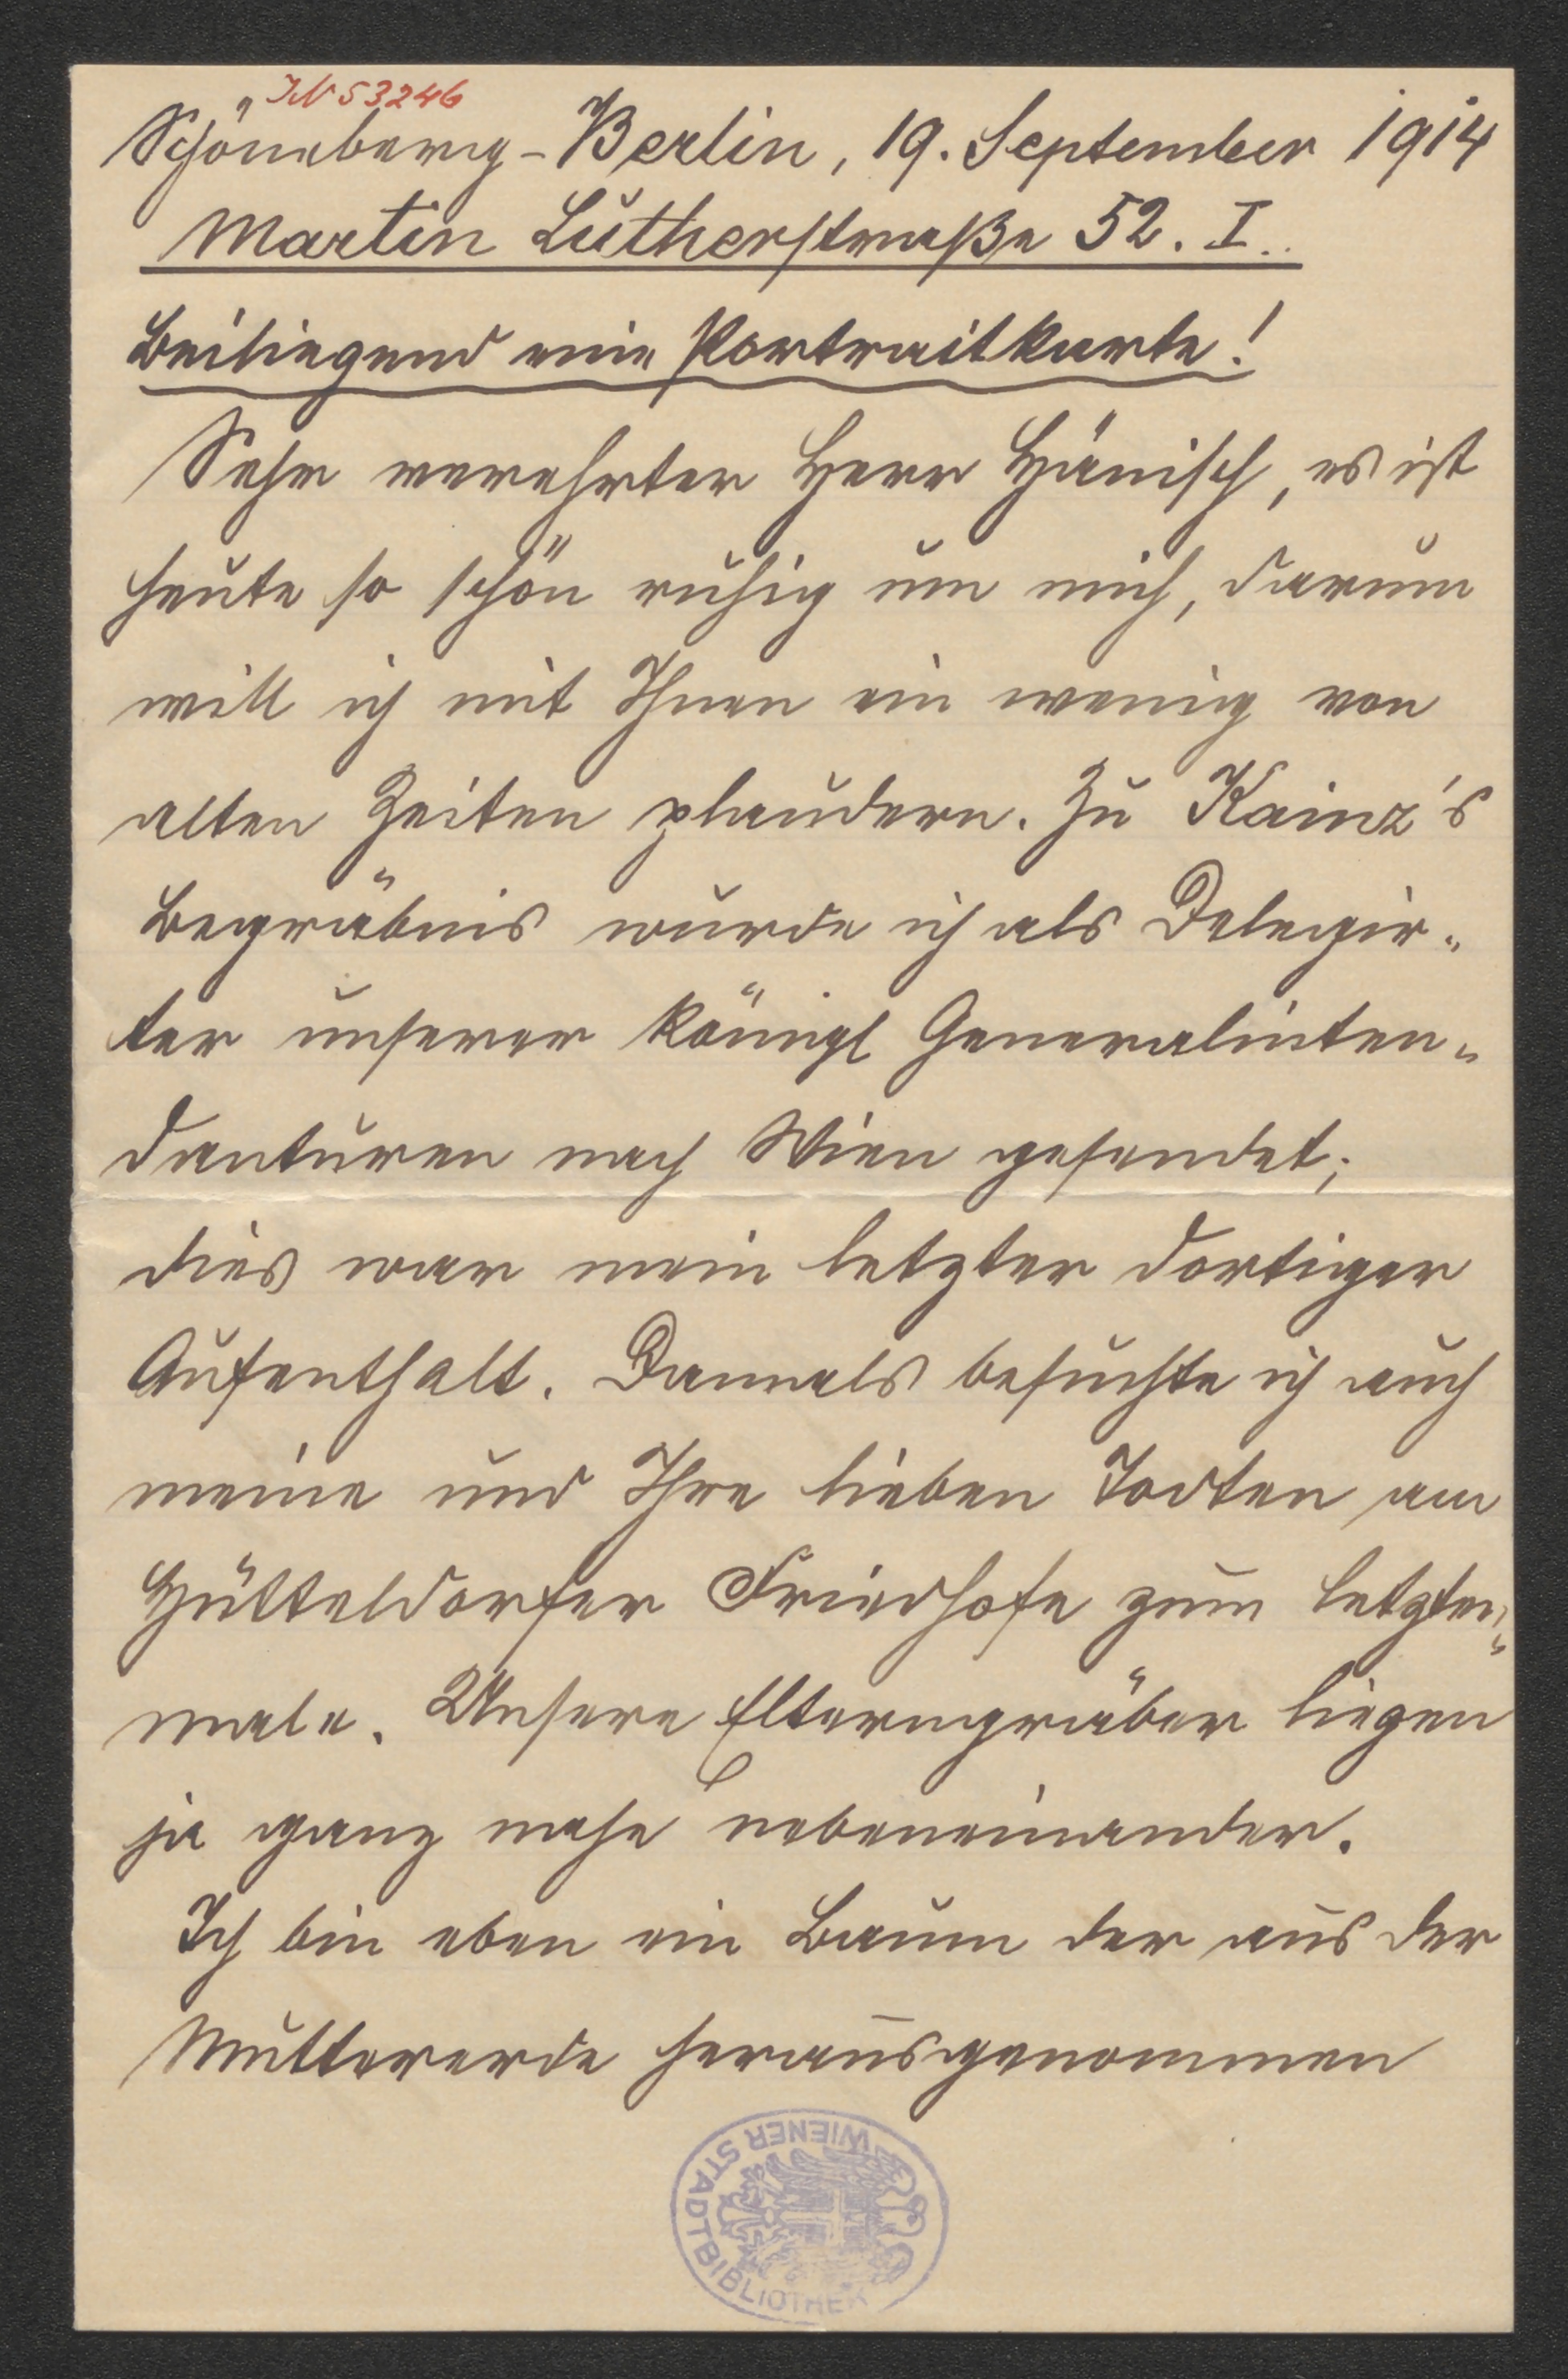 IN 53246
Schöneberg-Berlin, 19. September 1914
Martin Lutherstraße 52. I.
Beiliegend eine Portraitkarte!
Sehr verehrter Herr Hänisch, es ist
heute so schön ruhig um mich, darum
will ich mit Ihnen ein wenig von
alten Zeiten plaudern. Zu Kainz's
Begräbnis wurde ich als Delegir-
ter unserer königl Generalinten-
danturen nach Wien gesendet;
dies war mein letzter dortiger
Aufenthalt. Damals besuchte ich auch
meine und Ihre lieben Todten am
Hütteldorfer Friedhofe zum letzten-
male. Unsere Elterngräber liegen
ja ganz nahe nebeneinander.
Ich bin eben ein Baum der aus der
Muttererde herausgenommen
WIENER STADTBIBLIOTHEK